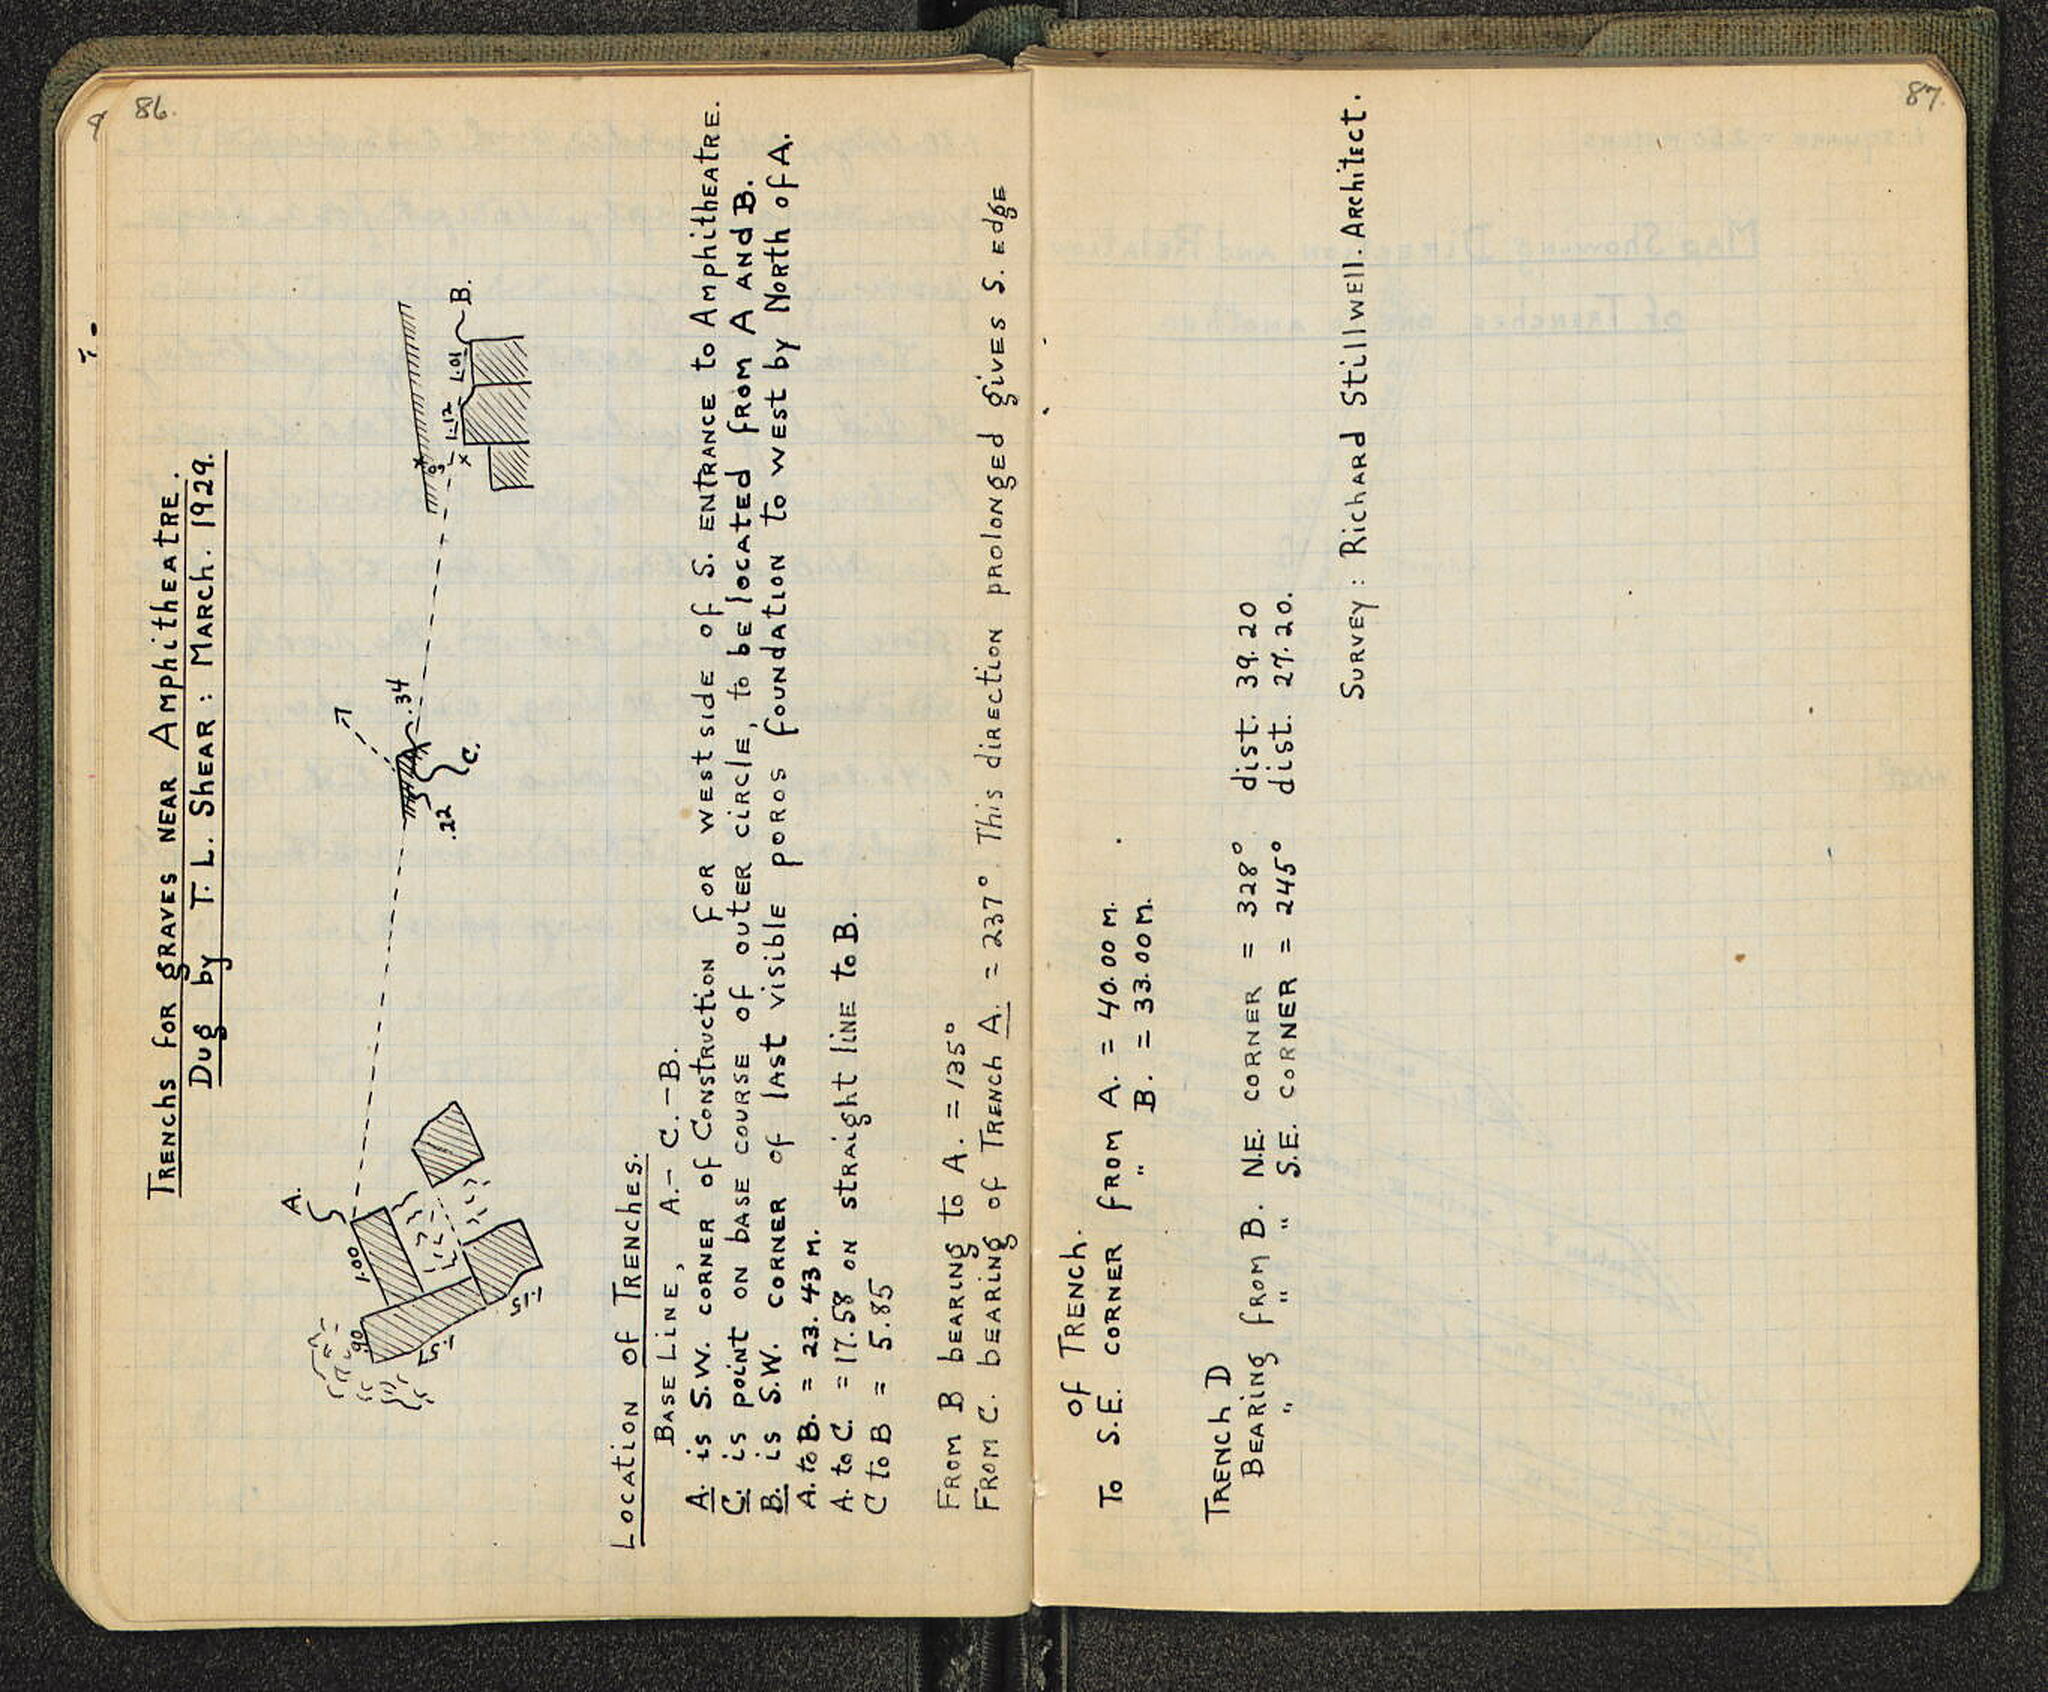 86.
87.
TRENCHS FOR GRAVES NEAR AMPHITHEATRE.
Dug by T. L. SHEAR: MARCH. 1929.
A.
1.00
.90
1.51
1.15
.22
.34
C.
1.12
1.01
B.
LOCATION of TRENCHES.
BASE LINE, A.- C.-B.
A. is S.W. CORNER of CONSTRUCTION FOR WEST SIDE OF S. ENTRANCE to AMPHITHEATRE.
C. is POINT ON BASE COURSE OF OUTER CIRCLE, to BE LOCATED FROM A AND B.
B. is S.W. CORNER of LAST VISIBLE POROS FOUNDATION to WEST by NORTH of A.
A. to B. = 23.43 M.
A. to C. = 17.58 ON STRAIGHT LINE to B.
C to B = 5.85
FROM B BEARING to A. = 135°
FROM C. BEARING of TRENCH A. = 237°. This DIRECTION PROLONGED gives S. Edge
of TRENCH.
To S.E. CORNER FROM A. = 40.00 M.
" B. = 33.00 M.
TRENCH D
BEARING FROM B. N.E. CORNER = 328° dist. 39.20
" " " S.E. CORNER = 245° dist. 27.20.
SURVEY: RICHARD STILLWELL. ARCHITECT.